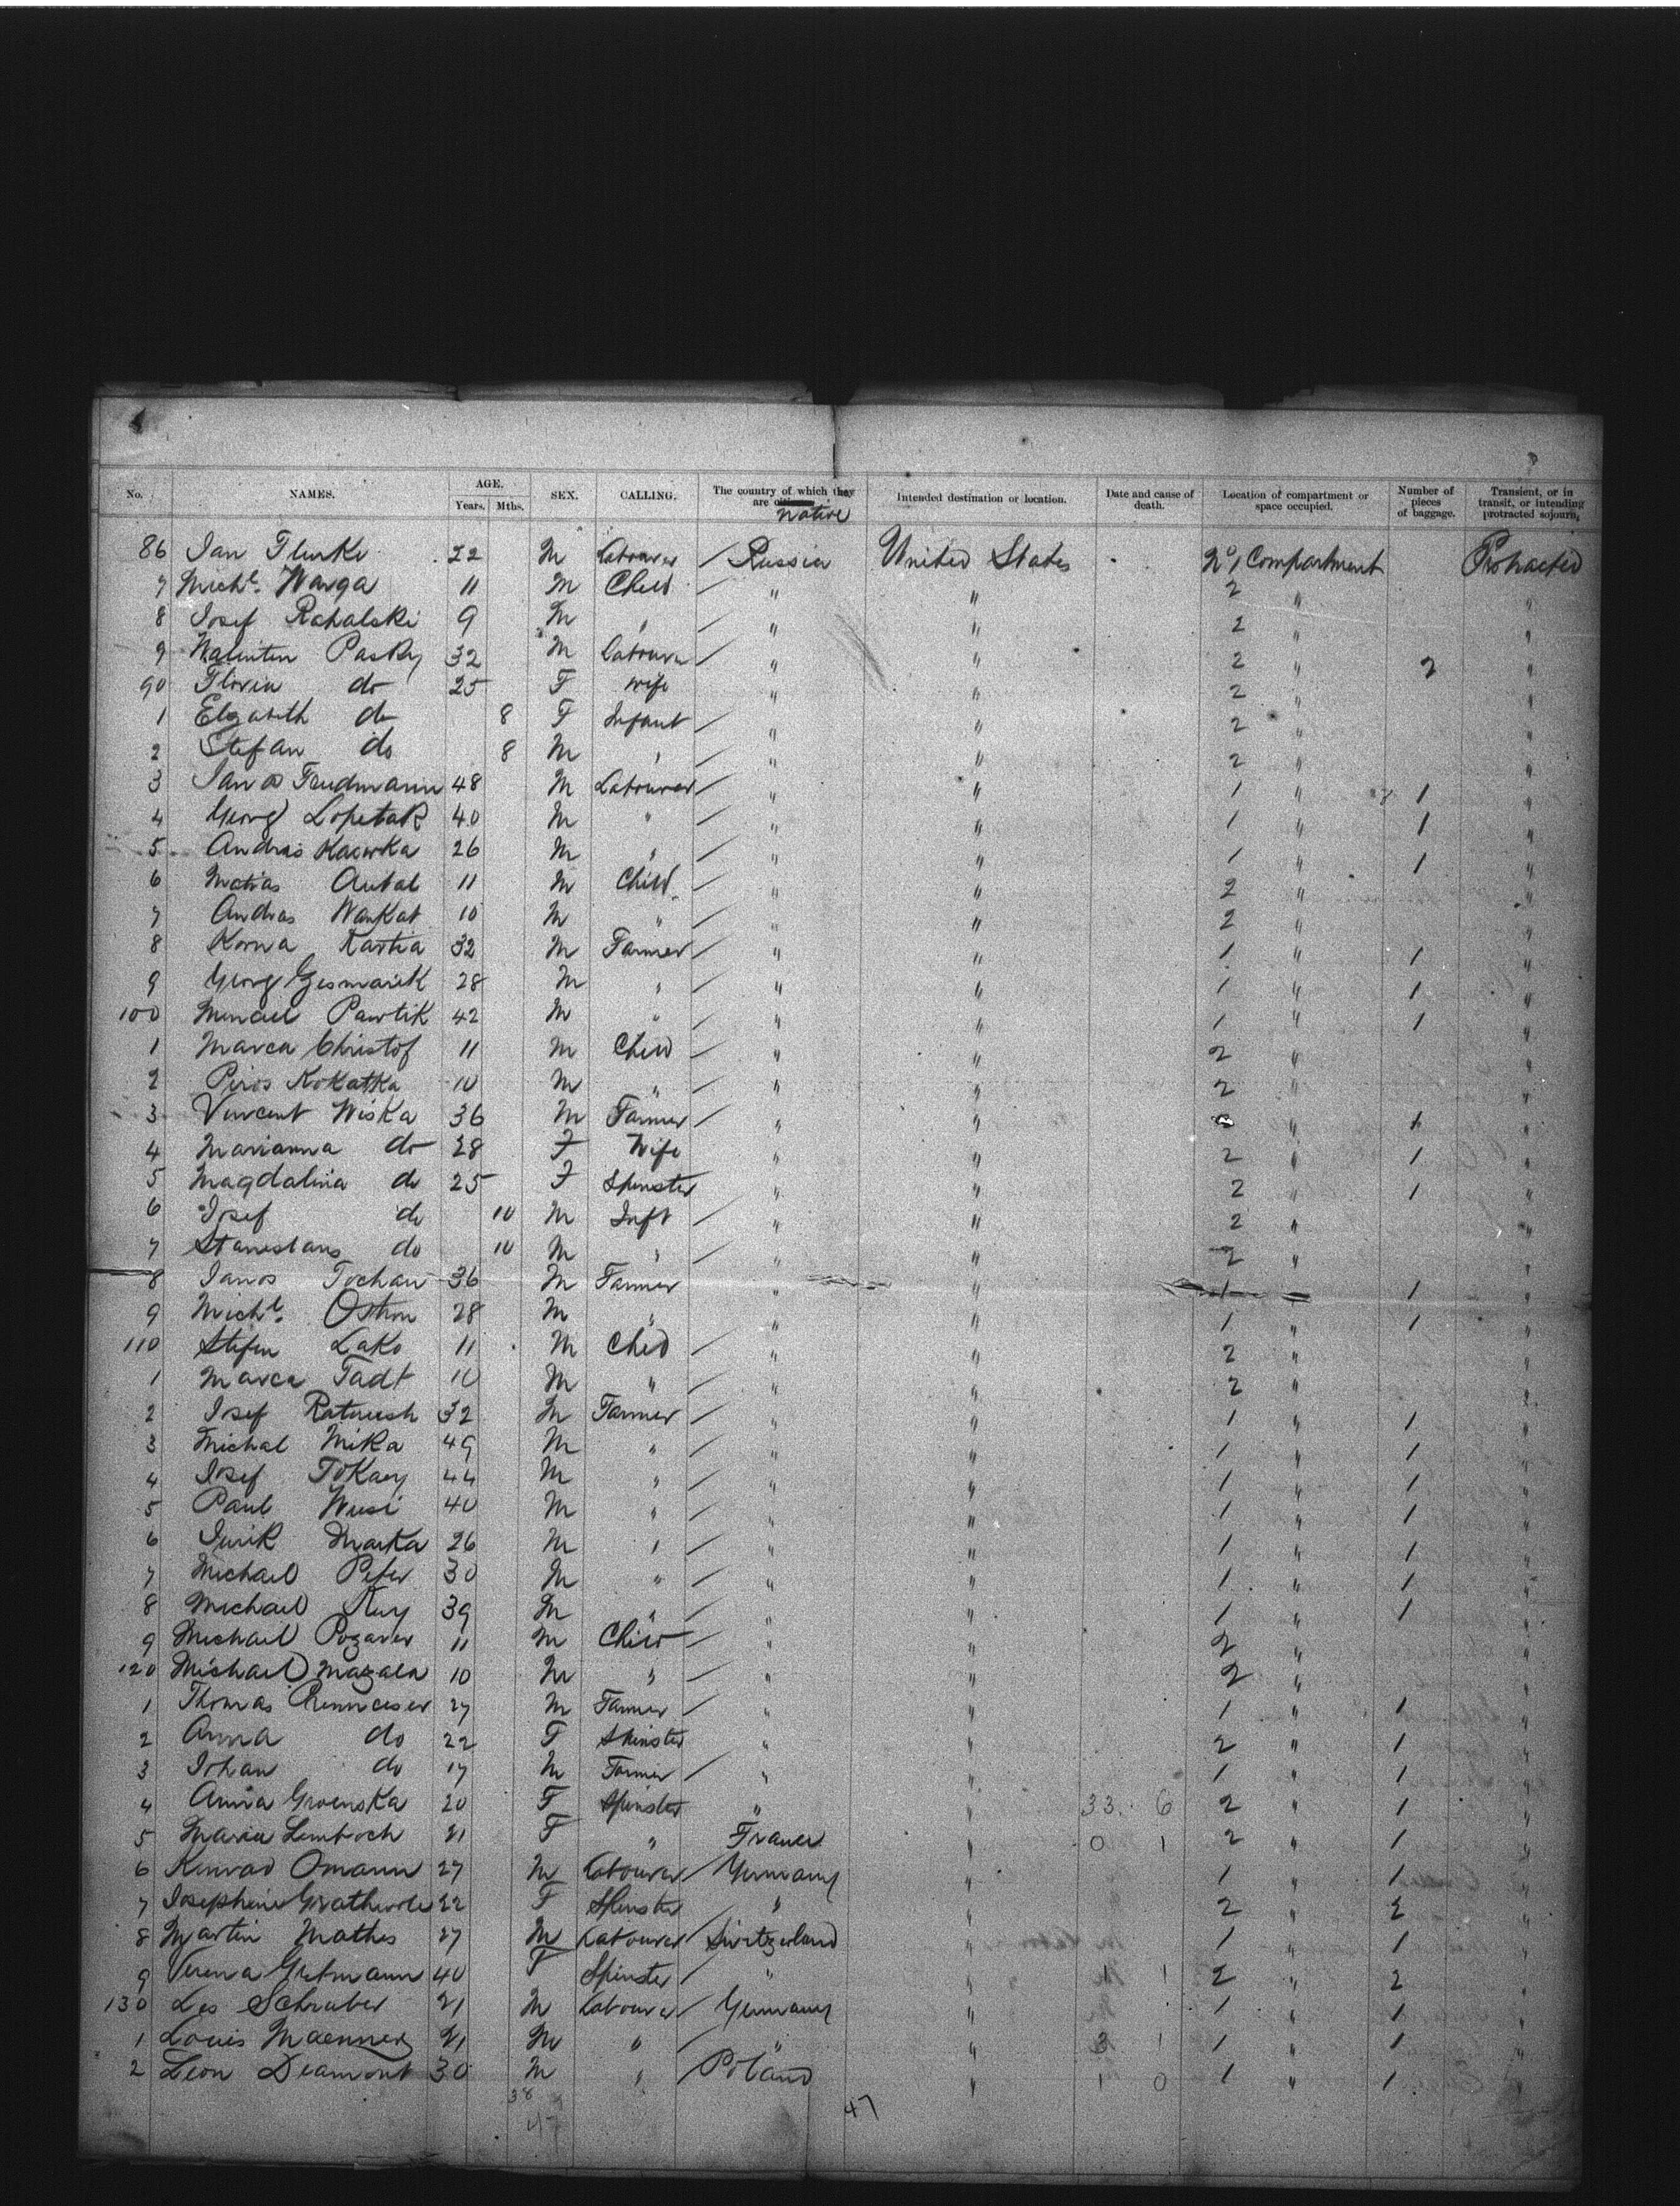 No. NAMES. AGE. Years. Mths. SEX. CALLING. The country of which they are citizens native Intended destination or location. Date and cause of death. Location of compartment or space occupied. Number of pieces of baggage. Transient, or in transit, or intending protracted sojourn.
86 Jan 22 M Labourer Russia United States No 1 Compartment Protracted
7 Michl. Warga 11 M Child " " 2 " "
8 Josef Rohalski 9 M " " " 2 " "
9 Walenten Pasky 32 M Labourer " " 2 " 2 "
90 Floria do 25 F Wife " " 2 " "
1 Elzabeth do 8 F Infant " " 2 " "
2 Stefan do 8 M " " " 2 " "
3 Janos 48 M Labourer " " 1 " 1 "
4 Georg Lopetak 40 M " " " 1 " 1 "
5 Andras Kacirka 26 M " " " 1 " 1 "
6 Matias Antal 11 M Child " " 2 " "
7 Andras Warkat 10 M " " " 2 " "
8 Korna Kastia 32 M Farmer " " 1 " 1 "
9 Georg Gesmarik 28 M " " " 1 " 1 "
100 Pawlik 42 M " " " 1 " 1 "
1 Marca Christof 11 M Child " " 2 " "
2 Piros Kokatka 10 M " " " 2 " "
3 Vincent Wiska 36 M Farmer " " " 1 "
4 Marianna do 28 F Wife " " 2 " 1 "
5 Magdalina do 25 F Spinster " " 2 " 1 "
6 Josef do 10 M Inft " " 2 " "
7 Stanislaus do 10 M " " " 2 " "
8 Janos Tochan 36 M Farmer " " 1 " 1 "
9 Michl. Ostron 28 M " " " 1 " 1 "
110 Stefen Lako 11 M Child " " 2 " "
1 Marca Tadt 10 M " " " 2 " "
2 Josef 32 M Farmer " " 1 " 1 "
3 Michal Mika 49 M " " " 1 " 1 "
4 Josef Tokaey 44 M " " " 1 " 1 "
5 Paul Wusi 40 M " " " 1 " 1 "
6 Jurik 26 M " " " 1 " 1 "
7 Michael Peter 30 M " " " 1 " 1 "
8 Michael 39 M " " " 1 " 1 "
9 Michael Pozarer 11 M Child " " 2 " "
120 Michael Mazala 10 M " " " 2 " "
1 Thomas 27 M Farmer " " 1 " 1 "
2 Anna do 22 F Spinster " " 2 " 1 "
3 Johan do 17 M Farmer " " 1 " 1 "
4 Anna Groenska 20 F Spinster " " 33. 6 2 " 1 "
5 Maria Lemboch 21 F " France " 0 1 2 " 1 "
6 Konrad Omann 27 M Labourer Germany " 1 " 1 "
7 Josephine 22 F Spinster " " 2 " 2 "
8 Martin Mathes 27 M Labourer Switzerland " 1 " 1 "
9 Verena Gutmann 40 F Spinster " " 1 1 2 " 2 "
130 Leo Schraber 21 M Labourer Germany " 1 " 1 "
1 Louis Maenner 21 M " " " 3 1 1 " 1 "
2 Leon Deamont 30 M " Poland " 1 0 1 " 1 "
38
47